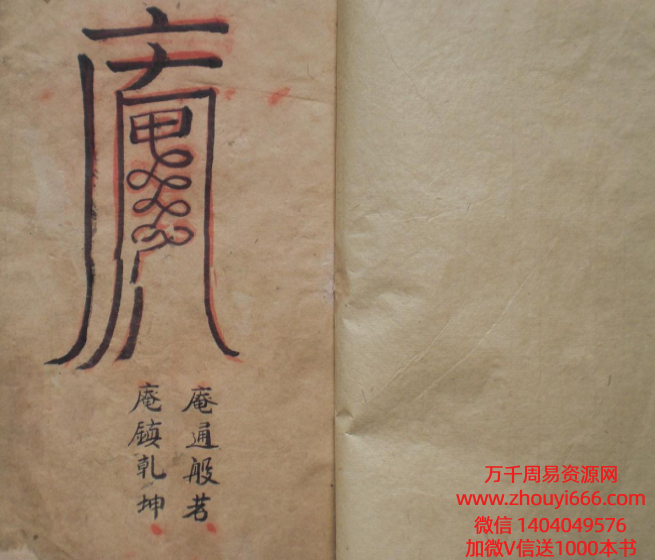 庵通般若
庵鎮乾坤
万千周易资源网
www.zhouyi666.com
微信 1404049576
加微V信送1000本书